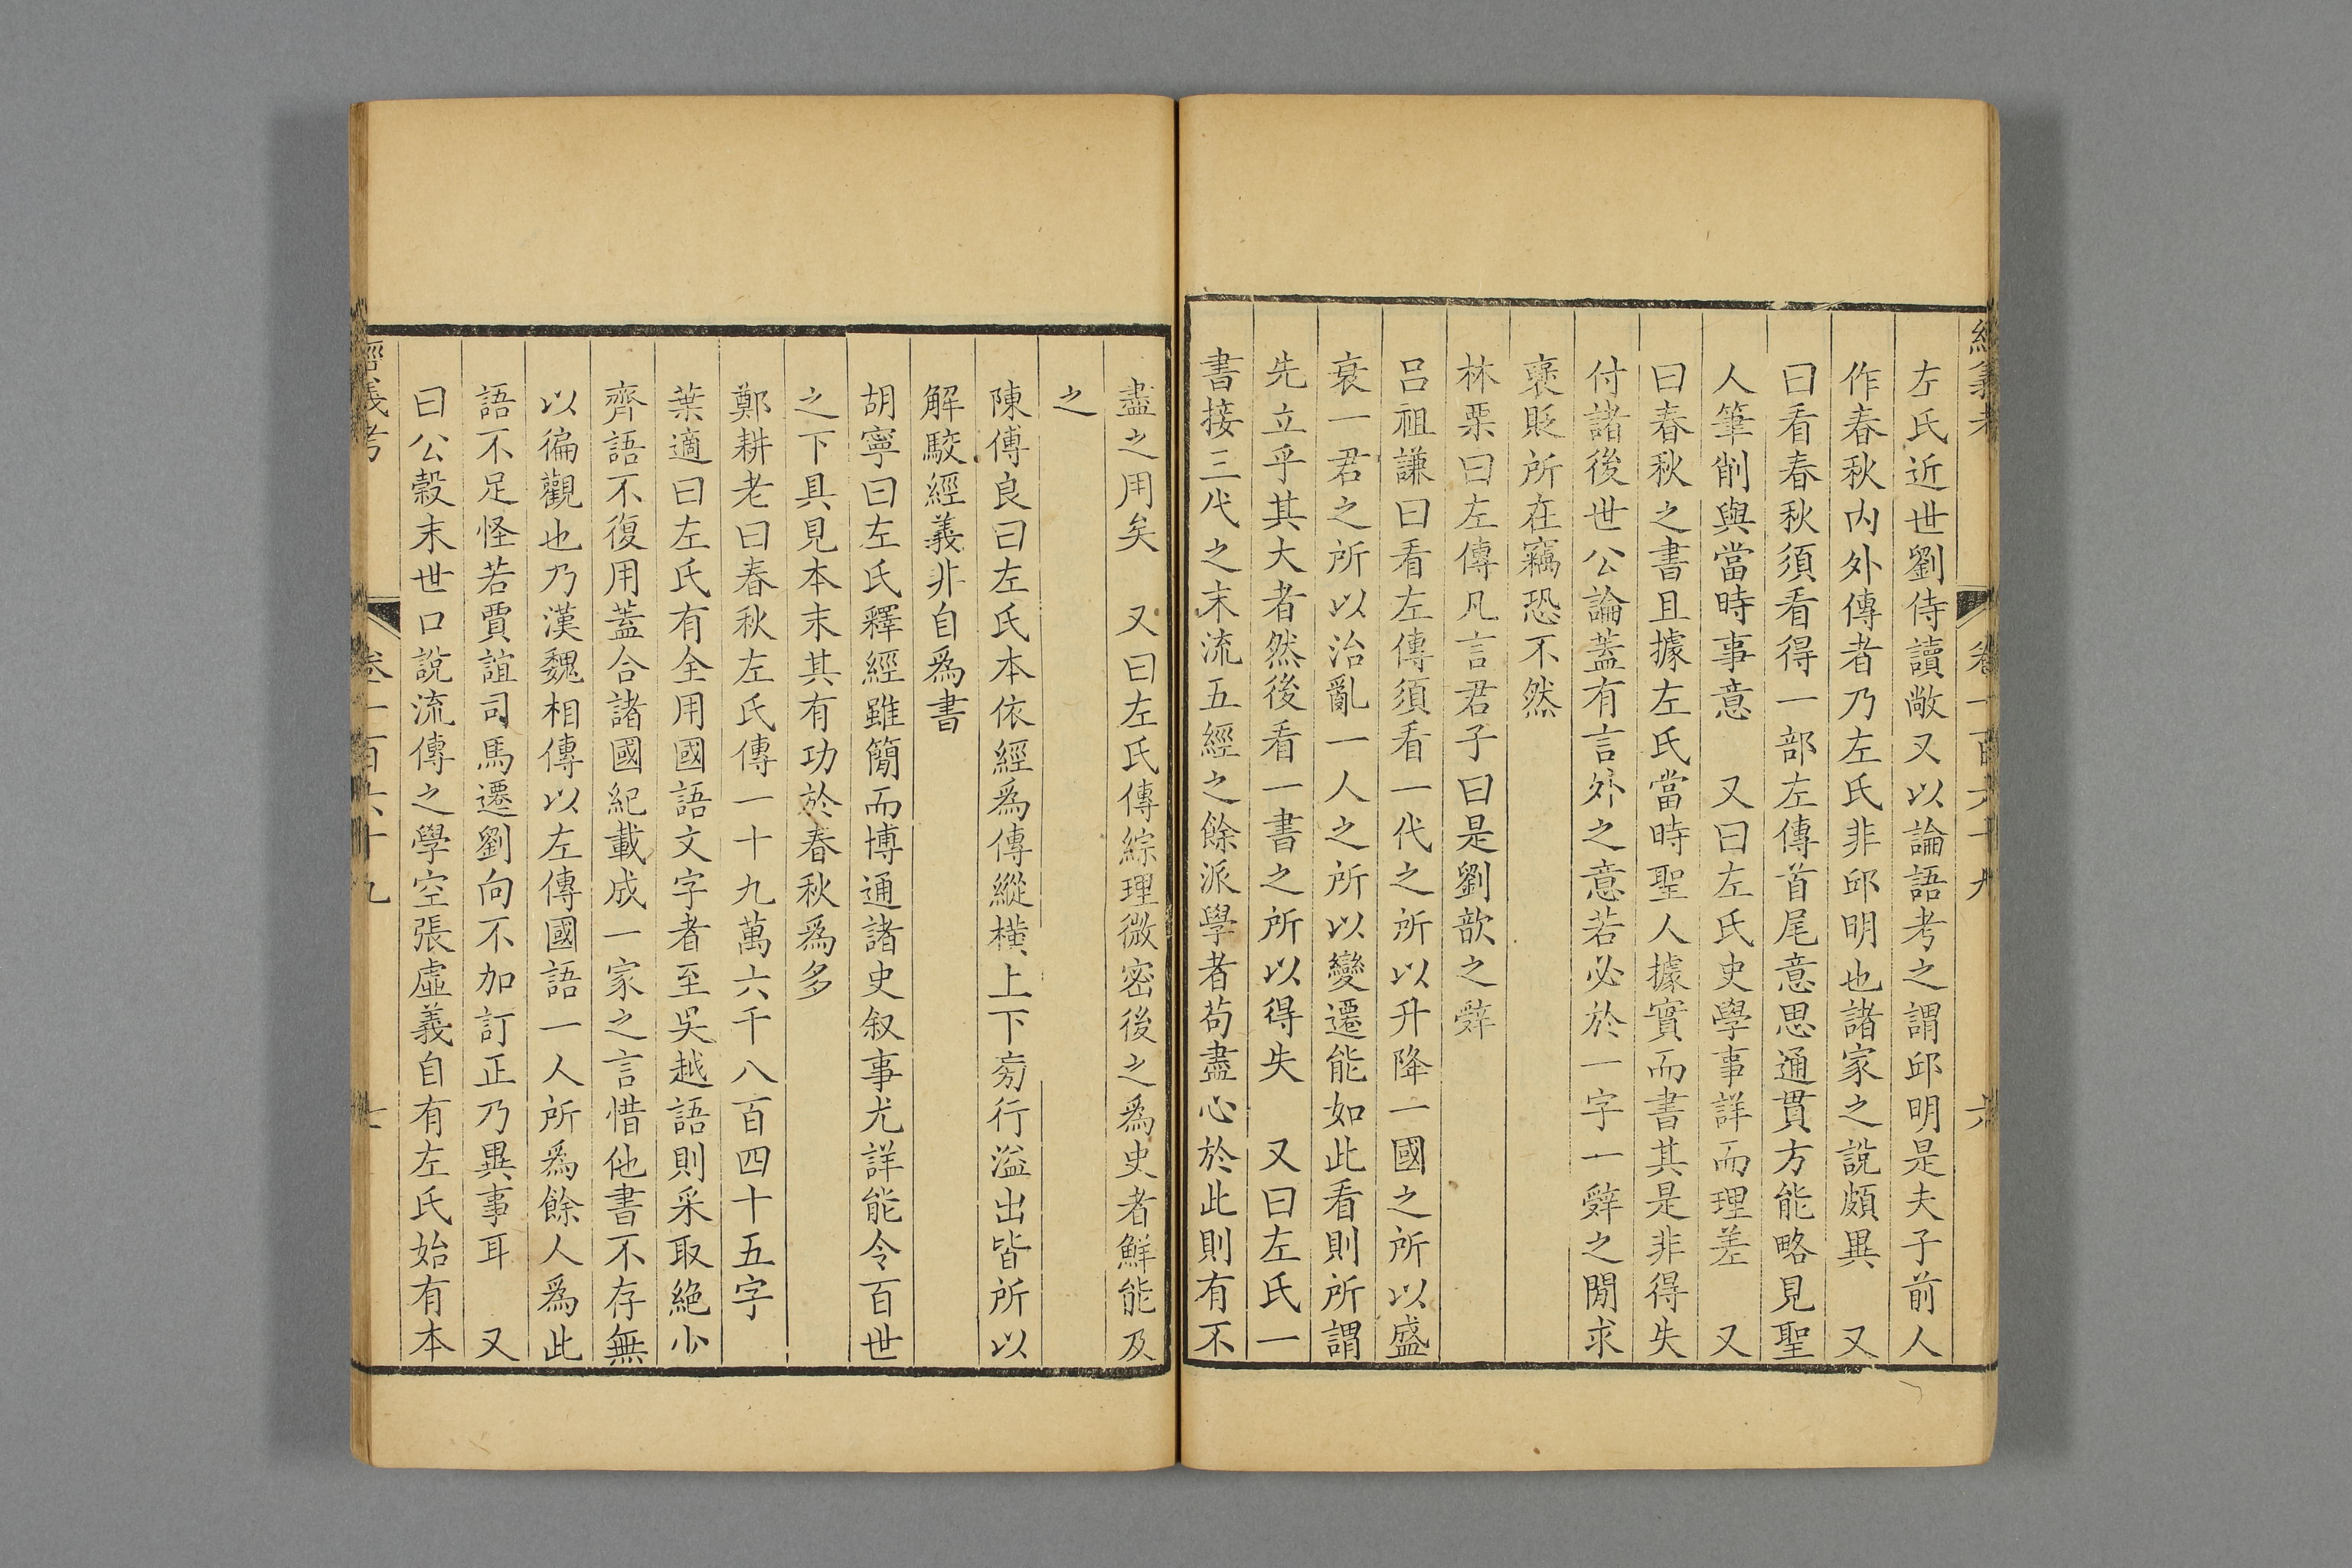 經義考　卷一百六十九　六
左氏近世劉侍讀敞又以論語考之謂邱明是夫子前人
作春秋内外傳者乃左氏非邱明也諸家之說頗異　又
曰看春秋須看得一部左傳首尾意思通貫方能略見聖
人筆削與當時事意　又曰左氏史學事詳而理差　又
曰春秋之書且據左氏當時聖人據實而書其是非得失
付諸後世公論蓋有言外之意若必於一字一辤之閒求
襃貶所在竊恐不然
林栗曰左傳凡言君子曰是劉歆之辤
呂祖謙曰看左傳須看一代之所以升降一國之所以盛
衰一君之所以治亂一人之所以變遷能如此看則所謂
先立乎其大者然後看一書之所以得失　又曰左氏一
書接三代之末流五經之餘派學者苟盡心於此則有不
盡之用矣　又曰左氏傳綜理微密後之爲史者鮮能及
之
陳傅良曰左氏本依經爲傳縱橫上下旁行溢出皆所以
解駮經義非自爲書
胡寧曰左氏釋經雖簡而博通諸史叙事尤詳能令百世
之下具見本末其有功於春秋爲多
鄭耕老曰春秋左氏傳一十九萬六千八百四十五字
葉適曰左氏有全用國語文字者至吳越語則采取絶少
齊語不復用蓋合諸國紀載成一家之言惜他書不存無
以徧觀也乃漢魏相傳以左傳國語一人所爲餘人爲此
語不足怪若賈誼司馬遷劉向不加訂正乃異事耳　又
曰公榖末世口說流傳之學空張虛義自有左氏始有本
經義考　卷一百六十九　七